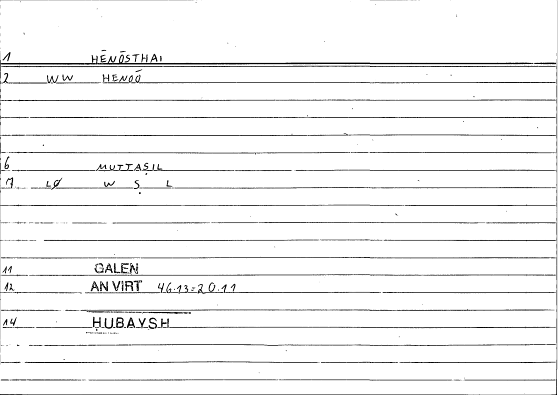 1 HĒNŌSTHAI
2 WW HENOŌ
6 MUTTAṢIL
7 LØ W Ṣ L
11 GALEN
12 AN VIRT 46.13=20.11
14 ḤUBAYSH